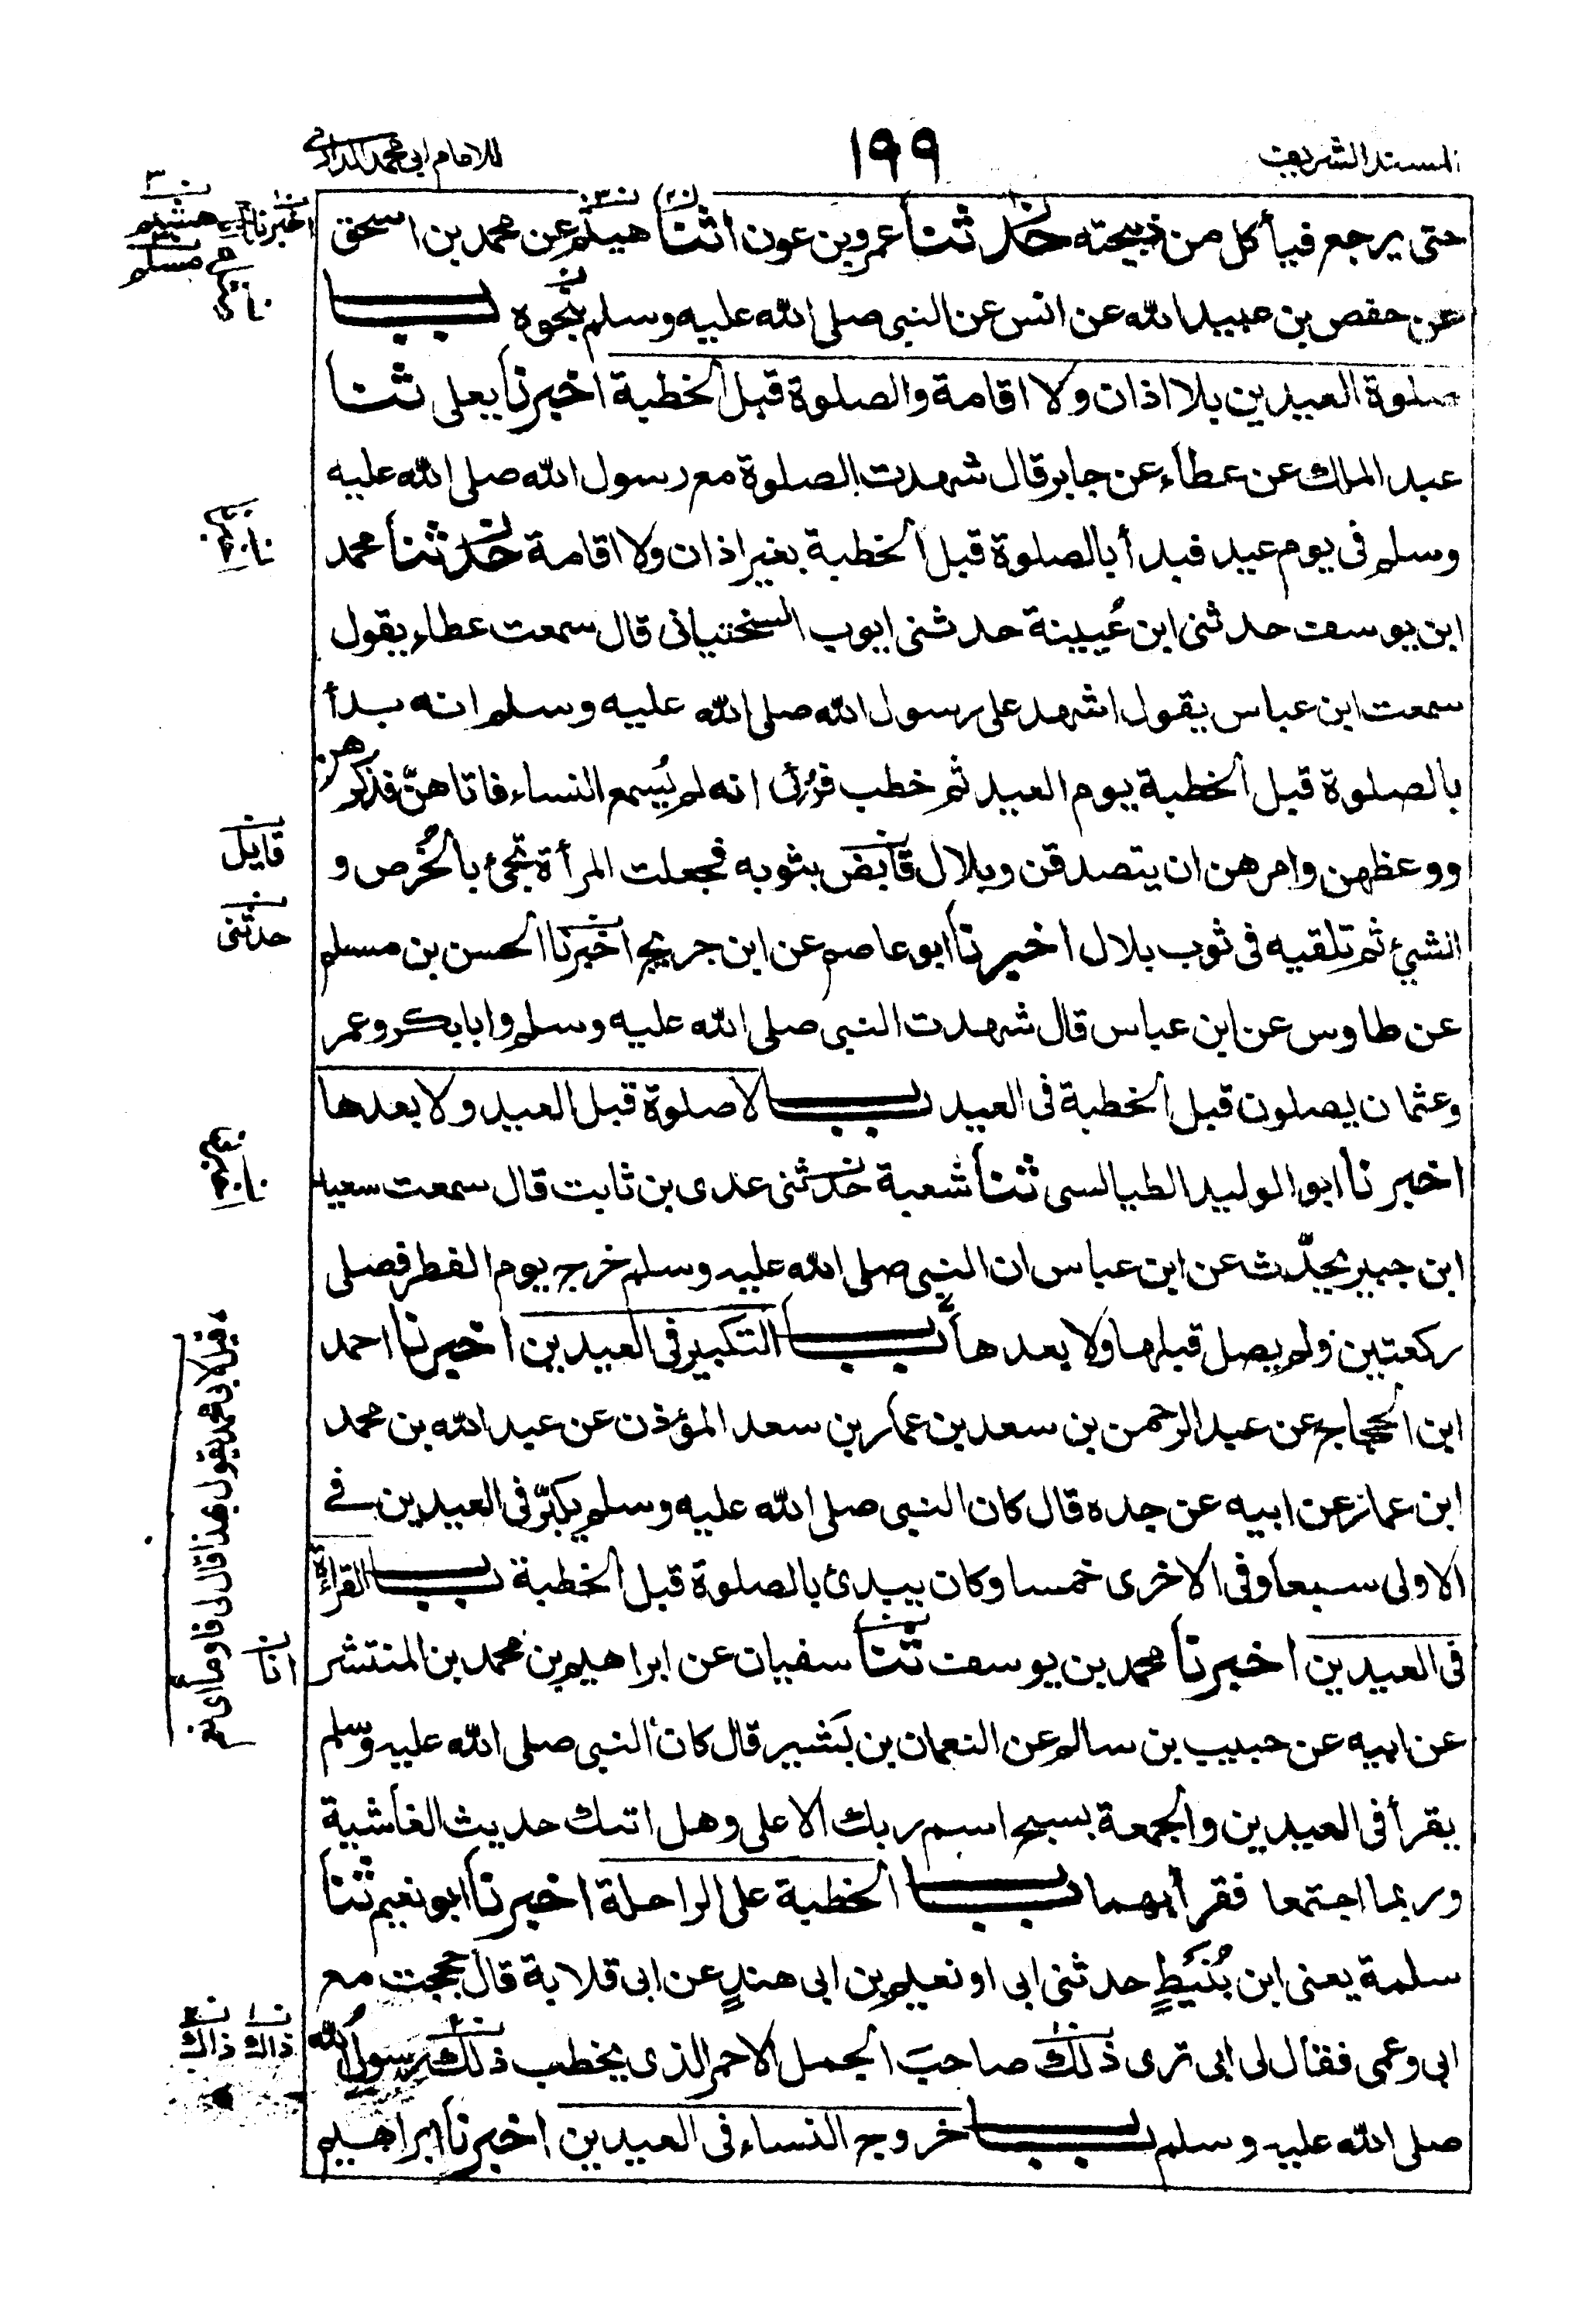 المسند الشريف
١٩٩
للامام ابي محمد الدارمي
حتى يرجع فيأكل من ذبيحته حدثنا عمرو بن عون اثنا هيثم عن محمد بن اسحق
عن حفص بن عبيد الله عن انس عن النبى صلى الله عليه وسلم بنحوه باب
صلوة العيدين بلا اذان ولا اقامة والصلوة قبل الخطبة اخبرنا يعلى ثنا
عبد الملك عن عطاء عن جابر قال شهدت الصلوة مع رسول الله صلى الله عليه
وسلم فى يوم عيد فبدأ بالصلوة قبل الخطبة بغير اذان ولا اقامة حدثنا محمد
ابن يوسف حدثنى ابن عُيينة حدثنى ايوب السختيانى قال سمعت عطاء يقول
سمعت ابن عباس يقول اشهد على رسول الله صلى الله عليه وسلم انه بدأ
بالصلوة قبل الخطبة يوم العيد ثم خطب فرُئى انه لم يُسمع النساء فاتاهنّ فذكرهن
ووعظهن وامرهن ان يتصدقن وبلال قابض بثوبه فجعلت المرأة تجئ بالخُرص و
الشئ ثم تلقيه فى ثوب بلال اخبرنا ابو عاصم عن ابن جريج اخبرنا الحسن بن مسلم
عن طاوس عن ابن عباس قال شهدت النبى صلى الله عليه وسلم وابا بكر وعمر
وعثمان يصلون قبل الخطبة فى العيد باب لا صلوة قبل العيد ولا بعدها
اخبرنا ابو الوليد الطيالسى ثنا شعبة حدثنى عدى بن ثابت قال سمعت سعيد
ابن جبير يحدّث عن ابن عباس ان النبى صلى الله عليه وسلم خرج يوم الفطر فصلى
ركعتين ولم يصل قبلها ولا بعدها باب التكبير فى العيدين اخبرنا احمد
ابن الحجاج عن عبد الرحمن بن سعد بن عمار بن سعد المؤذن عن عبد الله بن محمد
ابن عمار عن ابيه عن جده قال كان النبى صلى الله عليه وسلم يكبّر فى العيدين فى
الاولى سبعا وفى الاخرى خمسا وكان يبدئ بالصلوة قبل الخطبة باب القراءة
فى العيدين اخبرنا محمد بن يوسف ثنا سفيان عن ابراهيم بن محمد بن المنتشر
عن ابيه عن حبيب بن سالم عن النعمان بن بَشير قال كان النبى صلى الله عليه وسلم
يقرأ فى العيدين والجمعة بسبح اسم ربك الاعلى وهل اتىك حديث الغاشية
وربما اجتمعا فقرأ بهما باب الخطبة على الراحلة اخبرنا ابو نعيم ثنا
سلمة يعنى ابن نُبَيطٍ حدثنى ابى او نعيم بن ابى هندٍ عن ابى قلابة قال حججت مع
ابى وعمى فقال لى ابى ترى ذلك صاحبَ الجمل الاحمر الذى يخطب ذلك رسولُ الله
صلى الله عليه وسلم باب خروج النساء فى العيدين اخبرنا ابراهيم
اخبرنا
هشيم
مسلم
قايل
حدثنى
قيل لابى محمد يقول بهذا قال لى فاومأ اى نعم
انا
ذاك ذاك